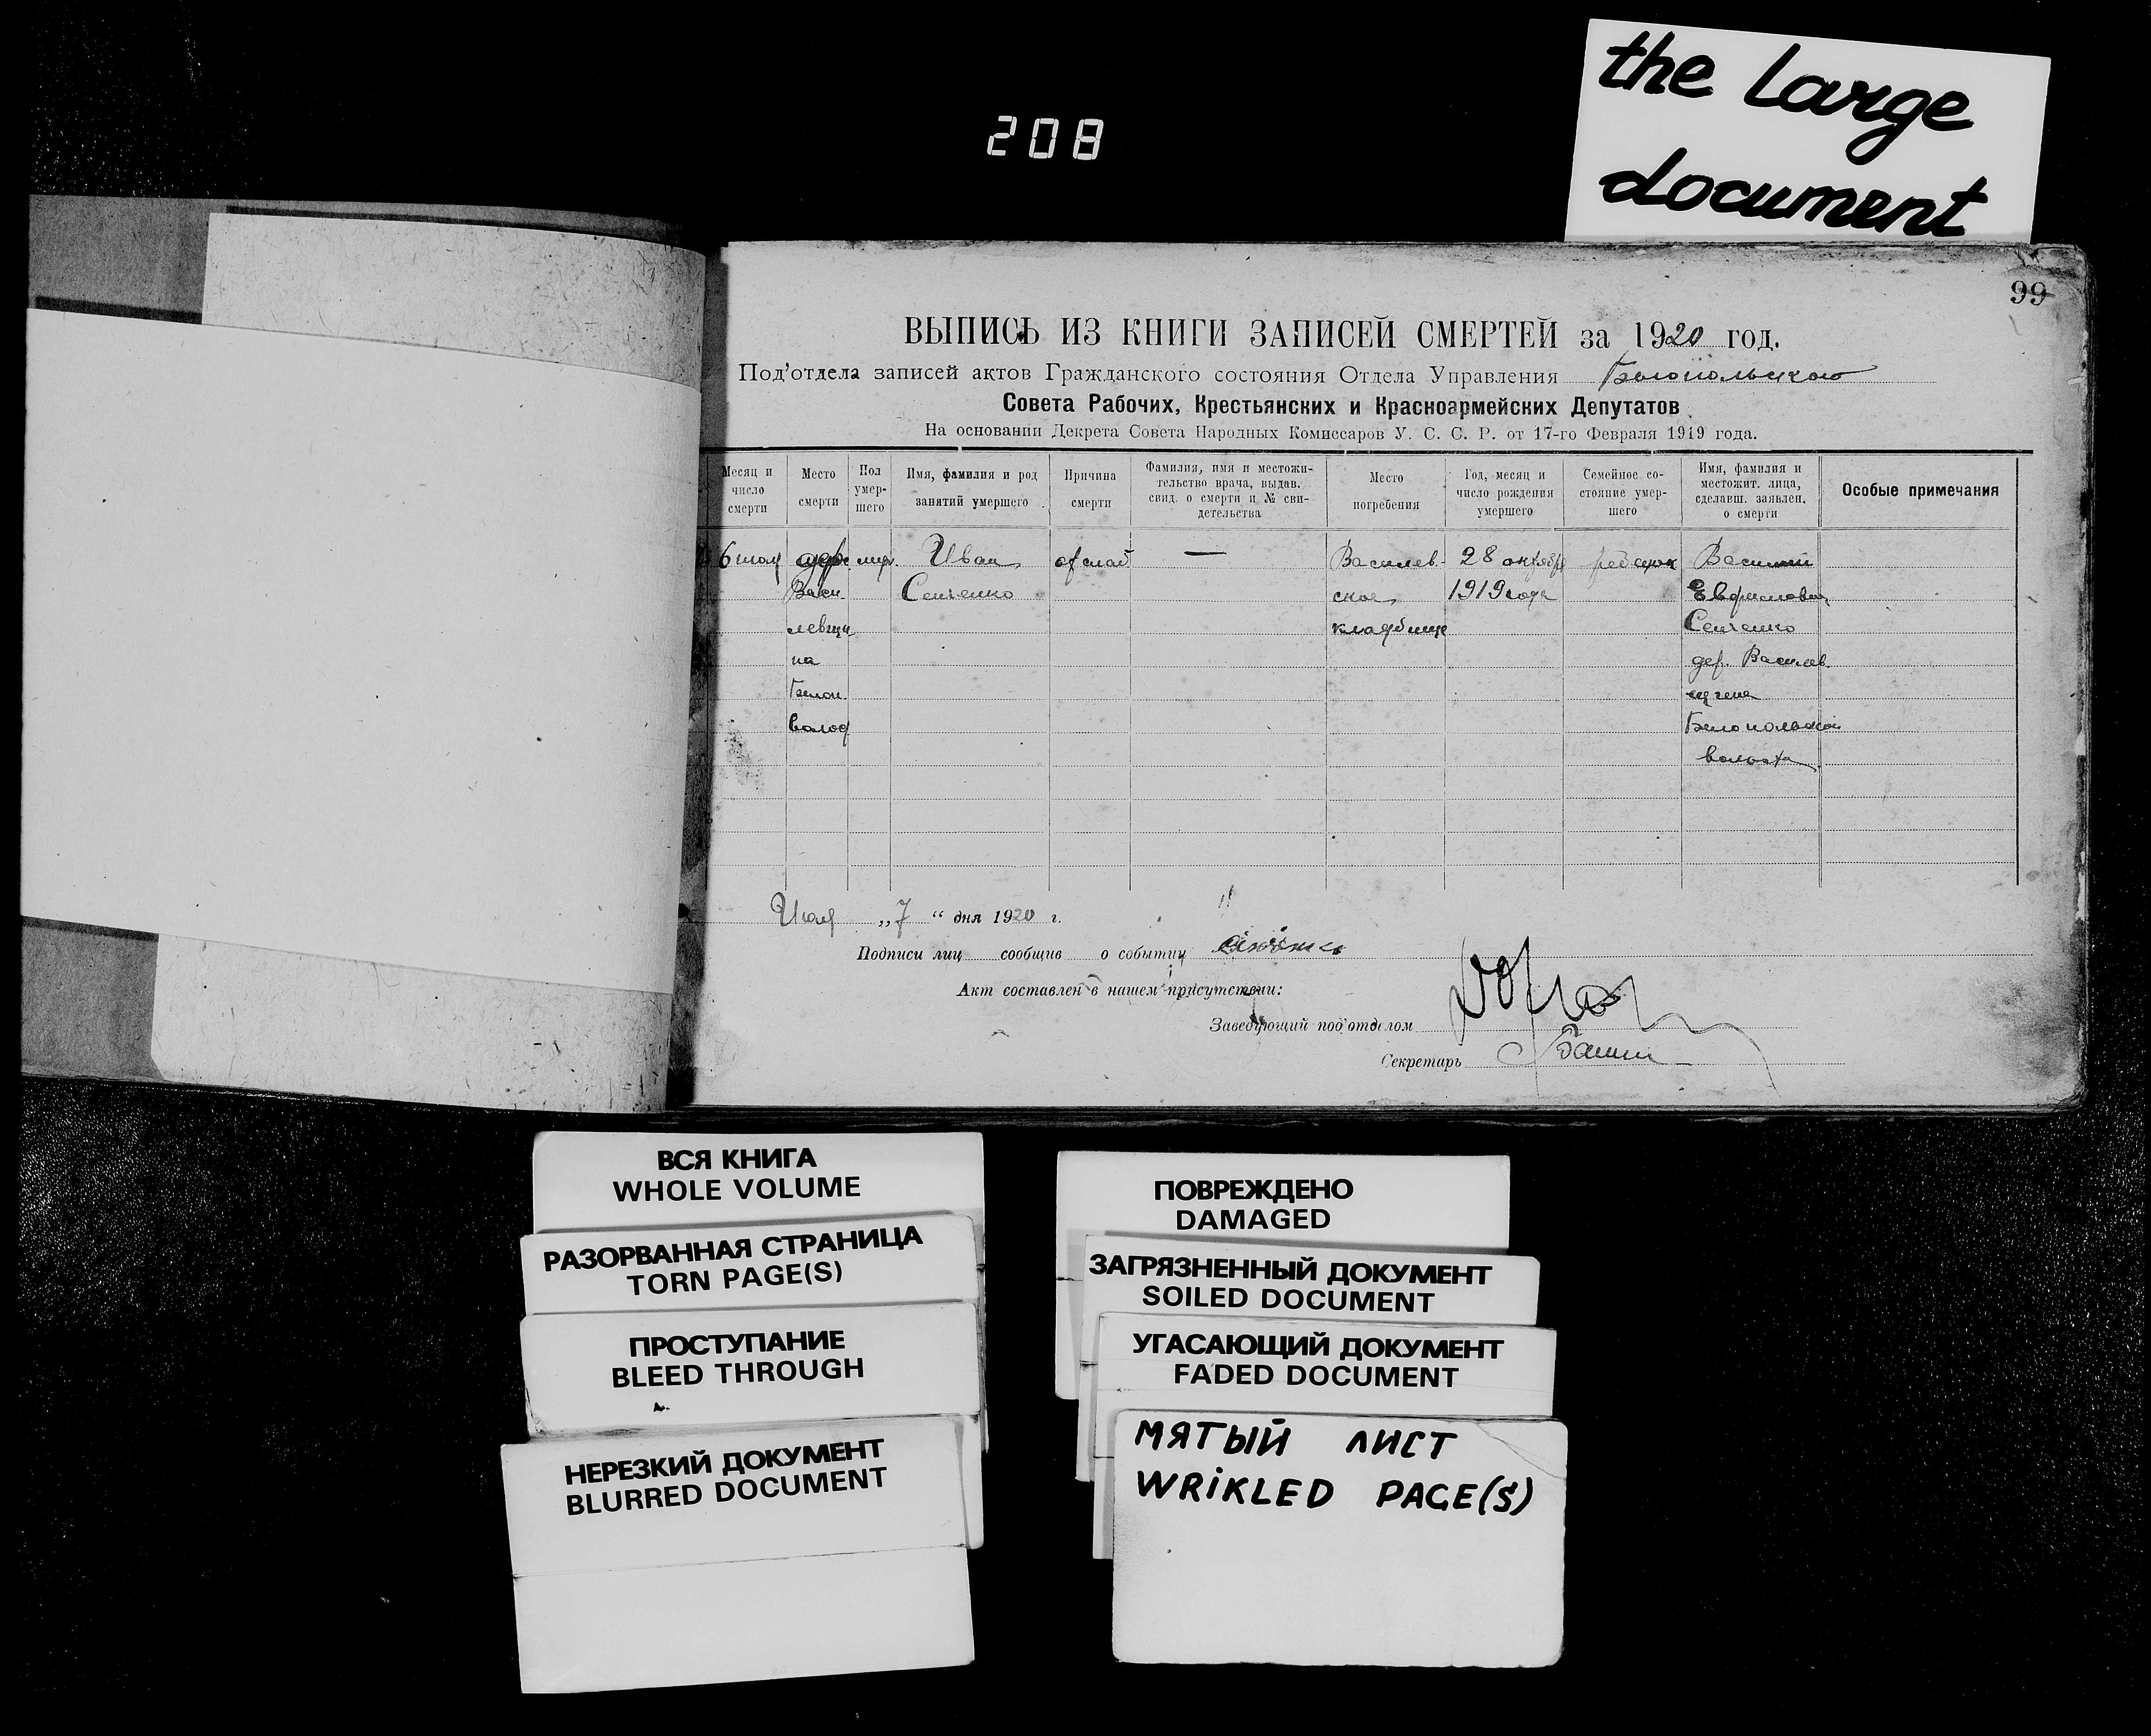 the large
document
208
99
ВЫПИСЬ ИЗ КНИГИ ЗАПИСЕЙ СМЕРТЕЙ за 1920 год.
Под'отдела записей актов Гражданского состояния Отдела Управления
Совета Рабочих, Крестьянских и Красноармейских Депутатов
На основании Декрета Совета Народных Комиссаров У. С. С. Р. от 17-го Февраля 1919 года.
Месяц и число смерти
Место смерти
Пол умер-шего
Имя, фамилия и род занятий умершего
Причина смерти
Фамилия, имя и местожи-тельство врача, выдав. свид. о смерти и № сви-детельства
Место погребения
Год, месяц и число рождения умершего
Семейное со-стояние умер-шего
Имя, фамилия и местожит. лица, сделавш. заявлен. о смерти
Особые примечания
6 Иван — Василев- 28 октября ребенок Василий
Васи- Сенченко ское 1919 года
левщи кладбище Сенченко
на дер. Василев
Белоп. щина
волос Белопольской
волости
Июля „7 “ дня 1920 г.
Подписи лиц сообщив о событии
Акт составлен в нашем присутствии:
Заведующий под'отделом
Секретарь
ВСЯ КНИГА
WHOLE VOLUME
РАЗОРВАННАЯ СТРАНИЦА
TORN PAGE(S)
ПРОСТУПАНИЕ
BLEED THROUGH
НЕРЕЗКИЙ ДОКУМЕНТ
BLURRED DOCUMENT
ПОВРЕЖДЕНО
DAMAGED
ЗАГРЯЗНЕННЫЙ ДОКУМЕНТ
SOILED DOCUMENT
УГАСАЮЩИЙ ДОКУМЕНТ
FADED DOCUMENT
МЯТЫЙ ЛИСТ
WRIKLED PAGE(S)